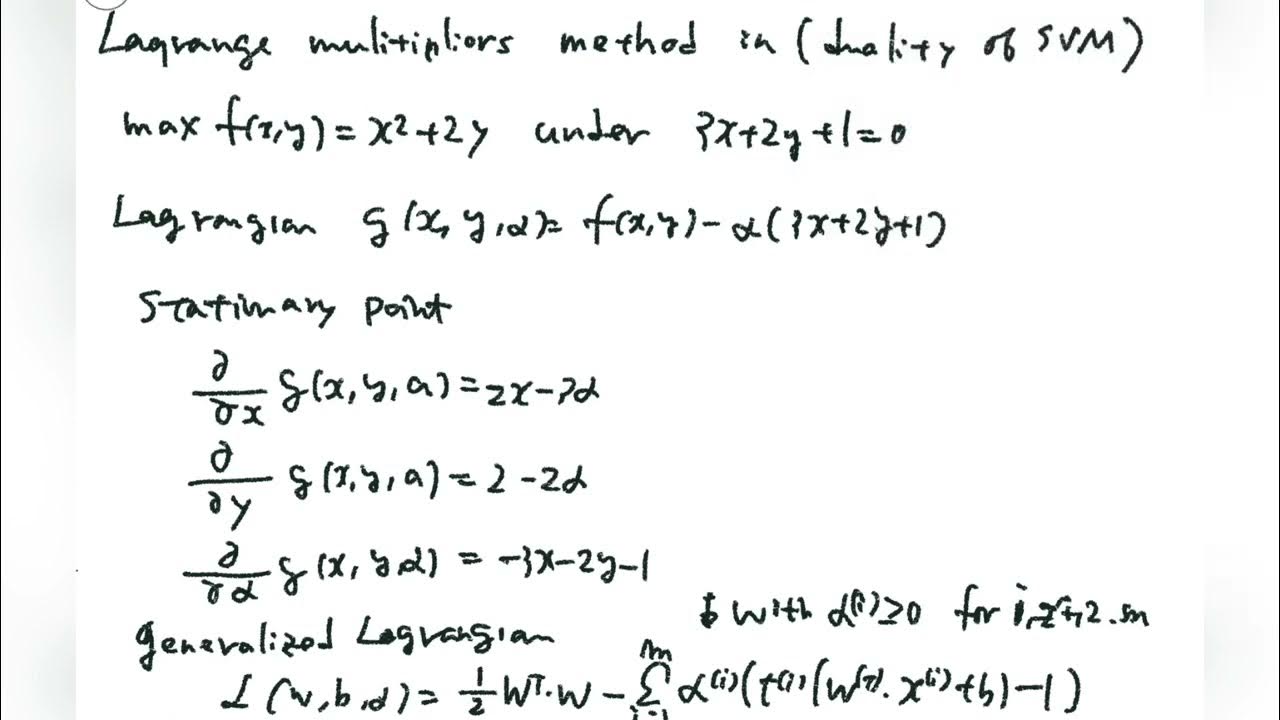 Lagrange mulitipliors method in (duality of SVM)
max f(x,y) = x2+2y under 3x+2y+1=0
Lagrangian g(x,y,α)= f(x,y)-α(3x+2y+1)
Stationary point
∂/∂x g(x,y,a)=2x-3α
∂/∂y g(x,y,a)=2-2α
∂/∂α g(x,y,α) = -3x-2y-1
with α(i)≥0 for
generalized Lagrangian
L(w,b,α) = 1/2 WT·W - m∑i=1 α(i)(t(i)(W(T)·x(i)+b)-1)